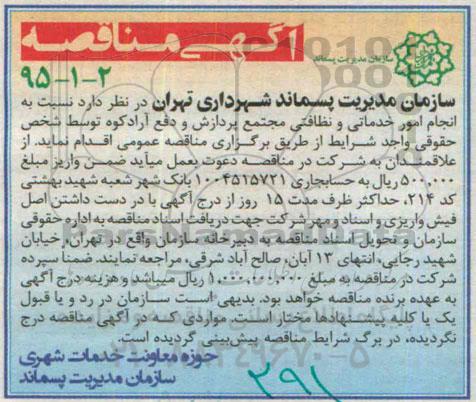 آگهی مناقصه
سازمان مدیریت پسماند
۹۵-۱-۲
سازمان مدیریت پسماند شهرداری تهران در نظر دارد نسبت به
انجام امور خدماتی و نظافتی مجتمع پردازش و دفع آرادکوه توسط شخص
حقوقی واجد شرایط از طریق برگزاری مناقصه عمومی اقدام نماید. از
علاقمندان به شرکت در مناقصه دعوت بعمل میآید ضمن واریز مبلغ
۵۰۰،۰۰۰ ریال به حسابجاری ۱۰۰۴۵۱۵۷۲۱ بانک شهر شعبه شهید بهشتی
کد ۲۱۴، حداکثر ظرف مدت ۱۵ روز از درج آگهی با در دست داشتن اصل
فیش واریزی و اسناد و مهر شرکت جهت دریافت اسناد مناقصه به اداره حقوقی
سازمان و تحویل اسناد مناقصه به دبیرخانه سازمان واقع در تهران، خیابان
شهید رجایی، انتهای ۱۳ آبان، صالح آباد شرقی، مراجعه نمایند. ضمناً سپرده
شرکت در مناقصه به مبلغ ریال میباشد و هزینه درج آگهی
به عهده برنده مناقصه خواهد بود. بدیهی است سازمان در رد و یا قبول
یک یا کلیه پیشنهادها مختار است. مواردی که در آگهی مناقصه درج
نگردیده، در برگ شرایط مناقصه پیش‌بینی گردیده است.
حوزه معاونت خدمات شهری
سازمان مدیریت پسماند
۲۹۱